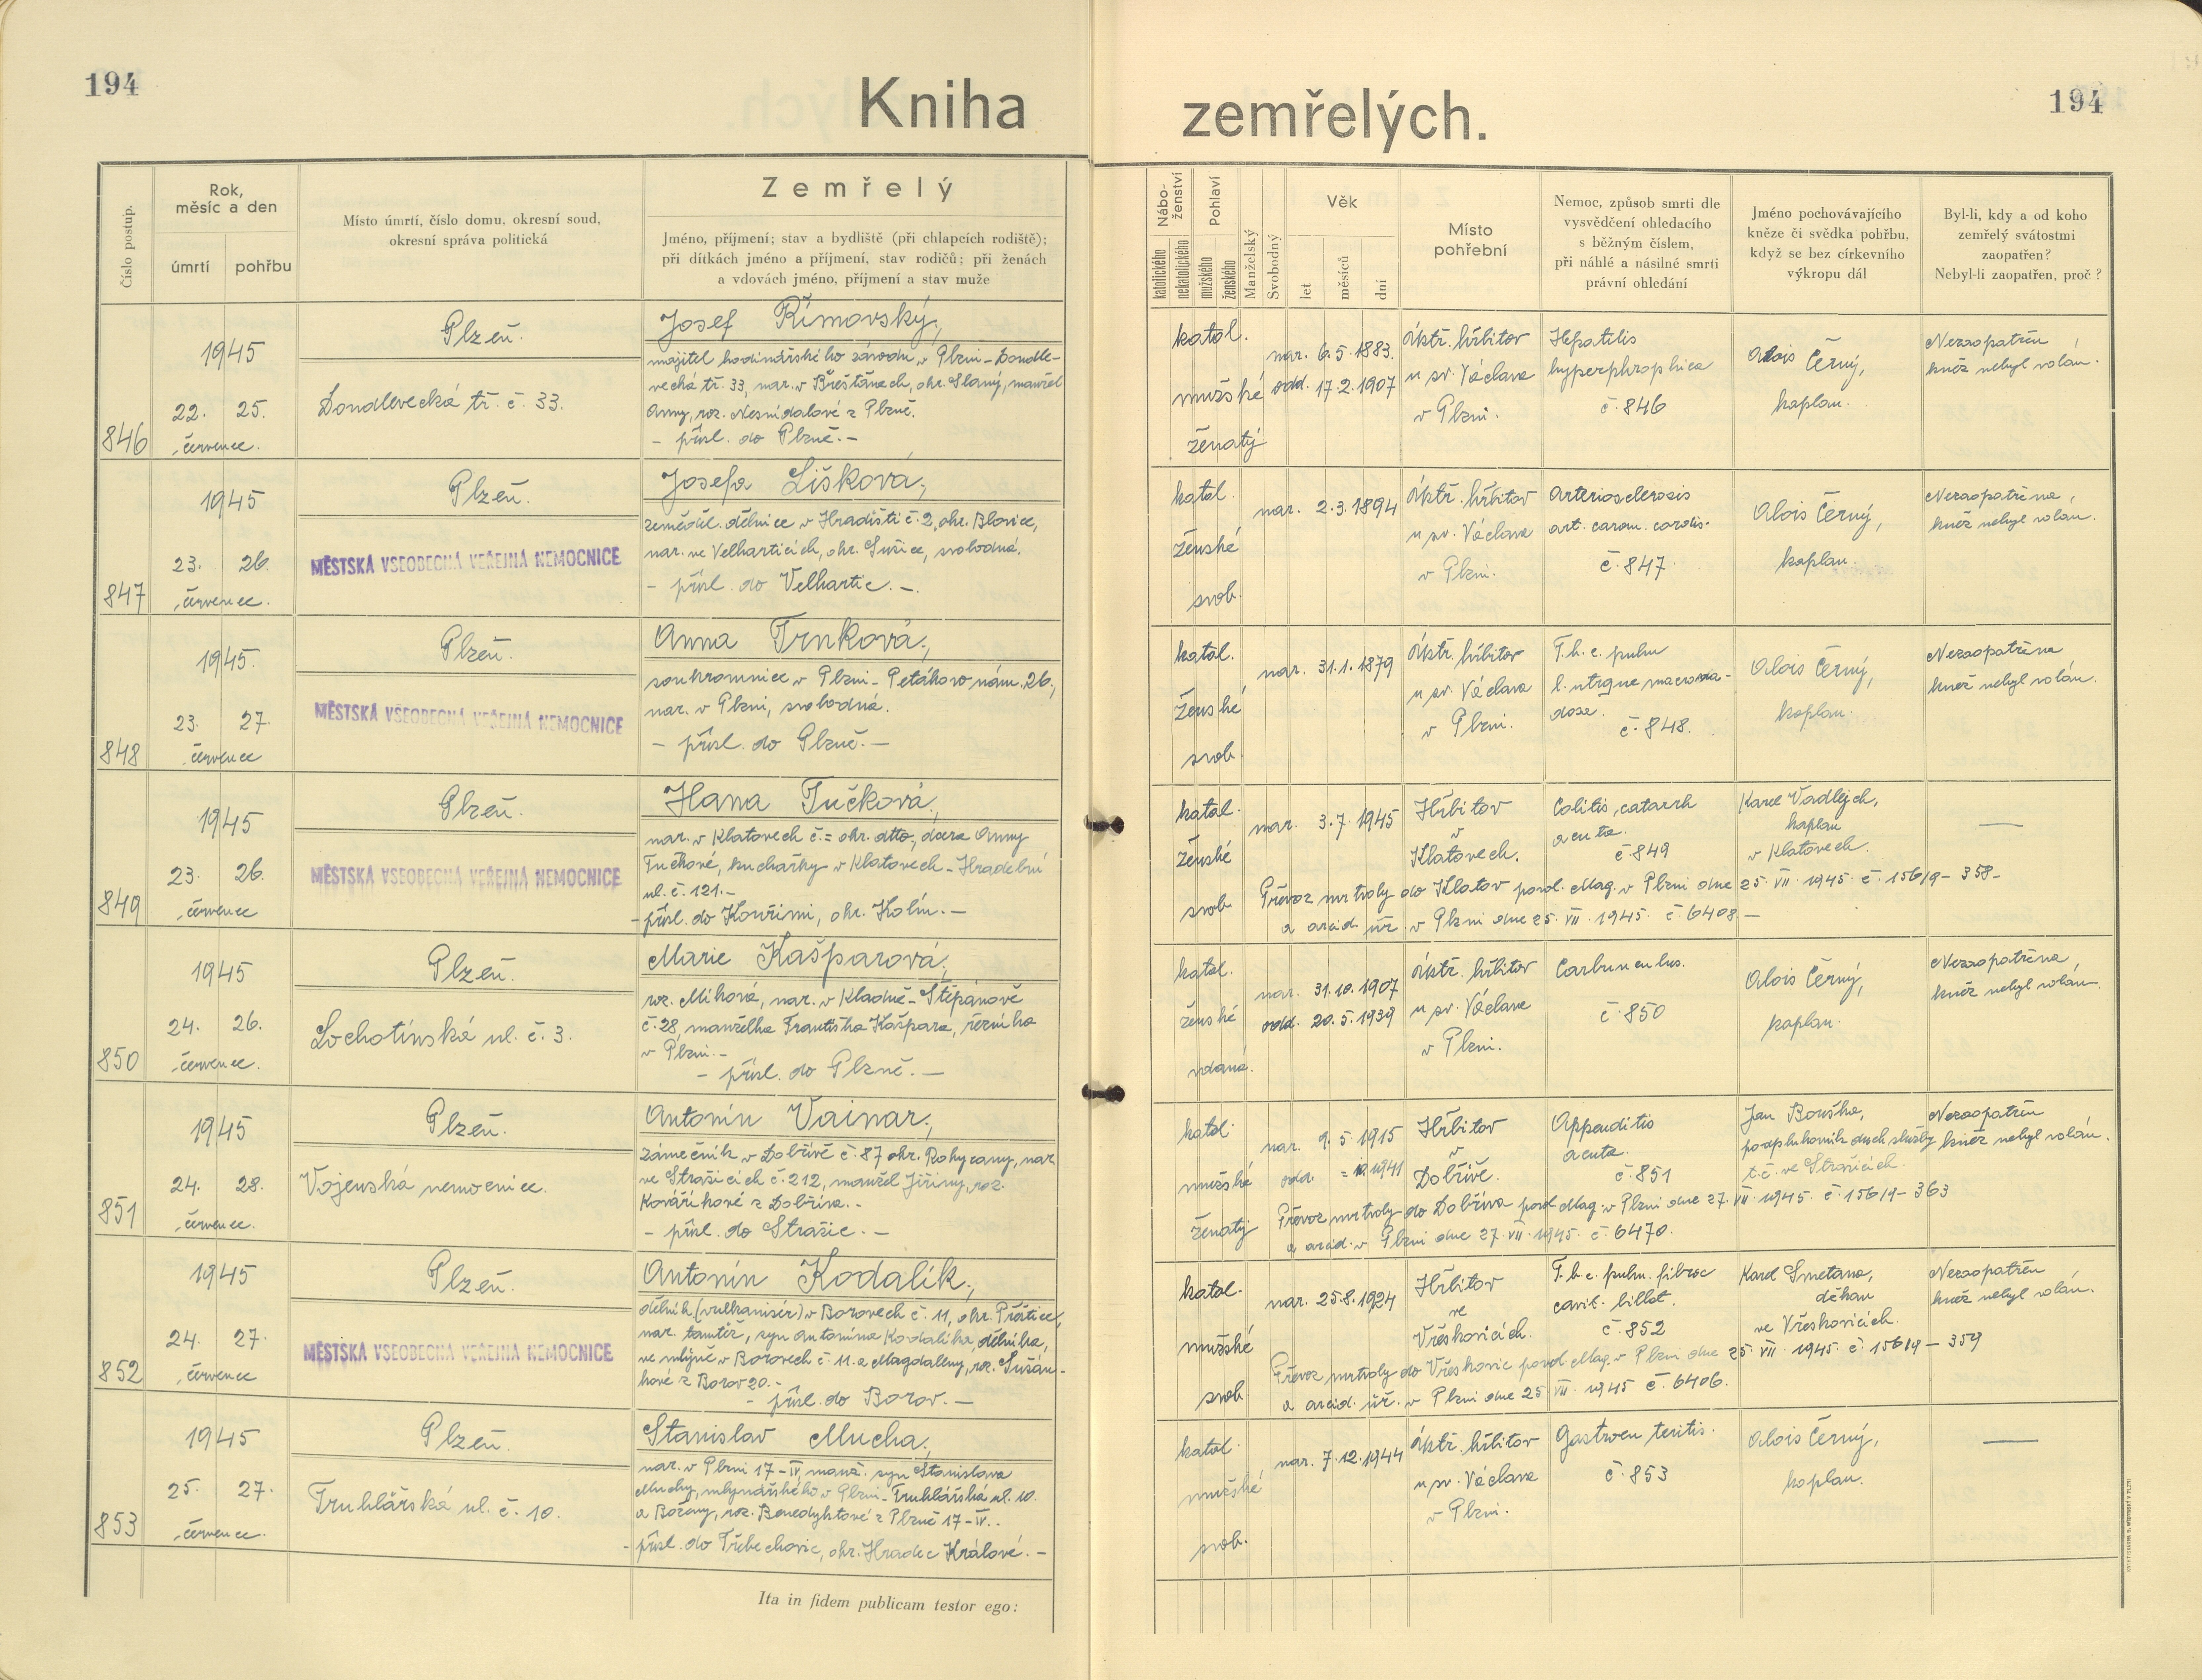 194
Kniha
zemřelých.
194
Číslo postup.
Rok,
měsíc a den
úmrtí
pohřbu
Místo úmrtí, číslo domu, okresní soud,
okresní správa politická
Zemřelý
Jméno, příjmení; stav a bydliště (při chlapcích rodiště);
při dítkách jméno a příjmení, stav rodičů; při ženách
a vdovách jméno, příjmení a stav muže
Nábo-
ženství
katolického
nekatolického
Pohlaví
mužského
ženského
Manželský
Svobodný
Věk
let
měsíců
dní
Místo
pohřební
Nemoc, způsob smrti dle
vysvědčení ohledacího
s běžným číslem,
při náhlé a násilné smrti
právní ohledání
Jméno pochovávajícího
kněze či svědka pohřbu,
když se bez církevního
výkropu dál
Byl-li, kdy a od koho
zemřelý svátostmi
zaopatřen?
Nebyl-li zaopatřen, proč?
846
1945
22. 25.
července.
Plzeň.
Doudlevecká tř. č. 33.
Josef Římovský,
majitel hodinářského závodu v Plzni - Doudle-
vecká tř. 33, nar. v Břešťanech, okr. Slaný, manžel
Anny, roz. Nesnídalové z Plzně.
- přísl. do Plzně. -
katol.
mužské
ženatý
nar. 6. 5. 1883.
odd. 17. 2. 1907
ústř. hřbitov
u sv. Václava
v Plzni.
Hepatitis
hyperphrophica
č. 846
Alois Černý,
kaplan.
Nezaopatřen
kněz nebyl volán.
847
1945
23. 26.
července.
Plzeň.
MĚSTSKÁ VŠEOBECNÁ VEŘEJNÁ NEMOCNICE
Josefa Lišková,
zeměděl. dělnice v Hradišti č. 2, okr. Blovice,
nar. ve Velharticích, okr. Sušice, svobodná.
- přísl. do Velhartic. -
katol.
ženské
svob.
nar. 2. 3. 1894
ústř. hřbitov
u sv. Václava
v Plzni.
Arteriosclerosis
art. coron. cordis.
č. 847
Alois Černý,
kaplan.
Nezaopatřena,
kněz nebyl volán.
848
1945.
23. 27.
července
Plzeň.
MĚSTSKÁ VŠEOBECNÁ VEŘEJNÁ NEMOCNICE
Anna Trnková,
soukromnice v Plzni - Petákovo nám. 26.,
nar. v Plzni, svobodná.
- přísl. do Plzně. -
katol.
ženské
svob.
nar. 31. 1. 1879
ústř. hřbitov
u sv. Václava
v Plzni.
T. b. c. pulm
l. utrque
dosa.
č. 848.
Alois Černý,
kaplan.
Nezaopatřena
kněz nebyl volán.
849
1945
23. 26.
července
Plzeň.
MĚSTSKÁ VŠEOBECNÁ VEŘEJNÁ NEMOCNICE
Hana Tučková,
nar. v Klatovech č. = okr. dtto., dcera Anny
Tučkové, kuchařky v Klatovech - Hradební
ul. č. 121. -
- přísl. do Kouřimi, okr. Kolín. -
katol.
ženské
svob.
nar. 3. 7. 1945
Hřbitov
v
Klatovech.
Colitis, catarrh
acuta.
č. 849
Karel Vadlejch,
kaplan
v Klatovech.
—
Převoz mrtvoly do Klatov povol. Mag. v Plzni dne 25. VII. 1945. č. 15619 - 358 -
a arcid. úř. v Plzni dne 25. VII. 1945. č. 6408 -
850
1945
24. 26.
července.
Plzeň.
Lochotínská ul. č. 3.
Marie Kašparová,
roz. Míková, nar. v Kladně - Štěpánově
č. 28, manželka Františka Kašpara, řezníka
v Plzni. -
- přísl. do Plzně. -
katol.
ženské
vdaná.
nar. 31. 10. 1907
odd. 20. 5. 1939
ústř. hřbitov
u sv. Václava
v Plzni.
Carbunculus.
č. 850
Alois Černý,
kaplan.
Nezaopatřena,
kněz nebyl volán.
851
1945
24. 28.
července.
Plzeň.
Vojenská nemocnice.
Antonín Vainar,
zámečník v Dobřívě č. 87 okr. Rokycany, nar.
ve Strašicích č. 212, manžel Jiřiny, roz.
Kováříkové z Dobříva. -
- přísl. do Strašic. -
katol.
mužské
ženatý
nar. 9. 5. 1915
odd.
Hřbitov
v
Dobřívě.
Appenditis
acuta.
č. 851
Jan Bouška,
podplukovník duch. služby
t. č. ve Strašicích.
Nezaopatřen
kněz nebyl volán.
Převoz mrtvoly do Dobříva povol. Mag. v Plzni dne 27. VII. 1945. č. 15619 - 363
a arcid. v Plzni dne 27. VII. 1945. č. 6470.
852
1945
24. 27.
července
Plzeň.
MĚSTSKÁ VŠEOBECNÁ VEŘEJNÁ NEMOCNICE
Antonín Kodalík,
dělník (vulkanisér) v Borovech č. 11, okr. Přeštice,
nar. tamtéž, syn Antonína Kodalíka, dělníka,
ve mlýně v Borovech č. 11. a Magdaleny, roz. Sušán-
kové z Borov 20. -
- přísl. do Borov. -
katol.
mužské
svob.
nar. 25. 8. 1924
Hřbitov
ve
Vřeskovicích.
T. b. c. pulm. fibroc
cavit. billat.
č. 852
Karel Smetana,
děkan
ve Vřeskovicích.
Nezaopatřen
kněz nebyl volán.
Převoz mrtvoly do Vřeskovic povol. Mag. v Plzni dne 25. VII. 1945. č. 15619 - 359
a arcid. úř. v Plzni dne 25. VII. 1945 č. 6406.
853
1945
25. 27.
července.
Plzeň.
Truhlářská ul. č. 10.
Stanislav Mucha,
nar. v Plzni 17 - IV, manž. syn Stanislava
Muchy, mlynářského v Plzni - Truhlářská ul. 10.
a Boženy, roz. Benedyktové z Plzně 17 - IV. -
- přísl. do Třebechovic, okr. Hradec Králové. -
katol.
mužské
svob.
nar. 7. 12. 1944
ústř. hřbitov
u sv. Václava
v Plzni.
Gastroenteritis.
č. 853
Alois Černý,
kaplan.
—
Ita in fidem publicam testor ego: